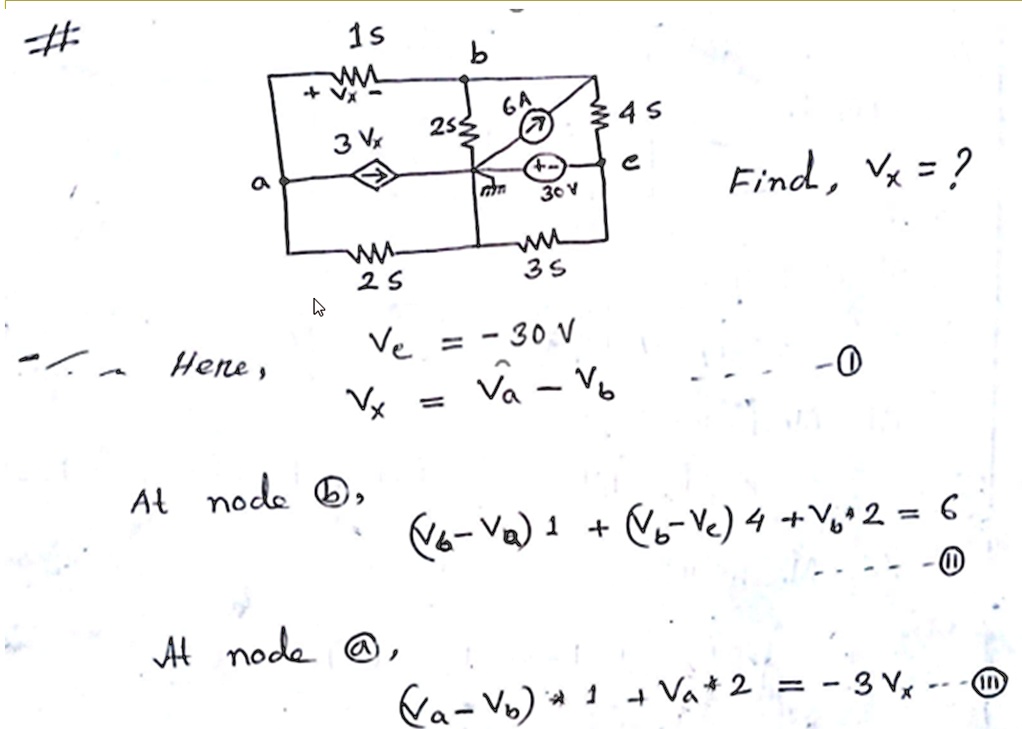 #
1S
b
+ Vx -
6A
2S
4S
3 Vx
a
+-
e
30V
2S
3S
Find, Vx = ?
Here, Ve = - 30 V
Vx = Va - Vb ---- - (I)
At node (b),
(Vb - Va) 1 + (Vb - Ve) 4 + Vb * 2 = 6
------(II)
At node (a),
(Va - Vb) * 1 + Va * 2 = - 3 Vx ---(III)